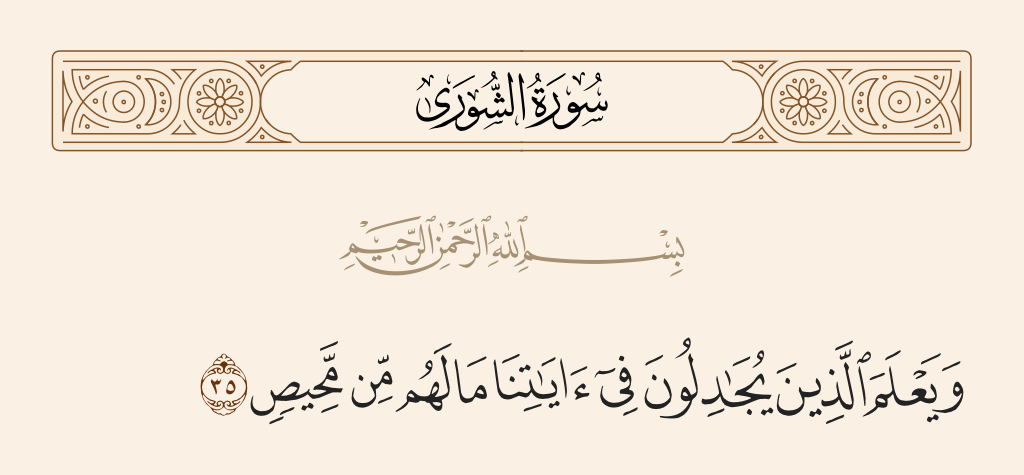 سُورَةُ الشُّورَىٰ
بِسْمِ ٱللَّهِ ٱلرَّحْمَٰنِ ٱلرَّحِيمِ
وَيَعْلَمَ ٱلَّذِينَ يُجَٰدِلُونَ فِىٓ ءَايَٰتِنَا مَا لَهُم مِّن مَّحِيصٍ ٣٥